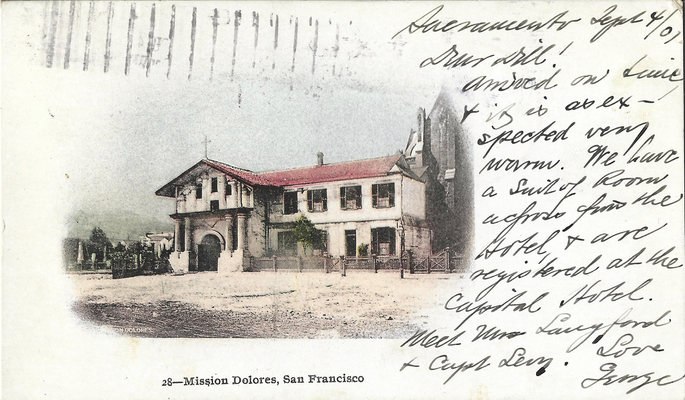 Sacramento Sept 4/01
Dear Will!
Arrived on time
& it is as ex-
spected very
warm. We have
a Suit of Room
across from the
Hotel, & are
registered at the
Capital Hotel.
Meet Mrs Langford
& Capt Levy. Love
George
MISSION DOLORES
28—Mission Dolores, San Francisco